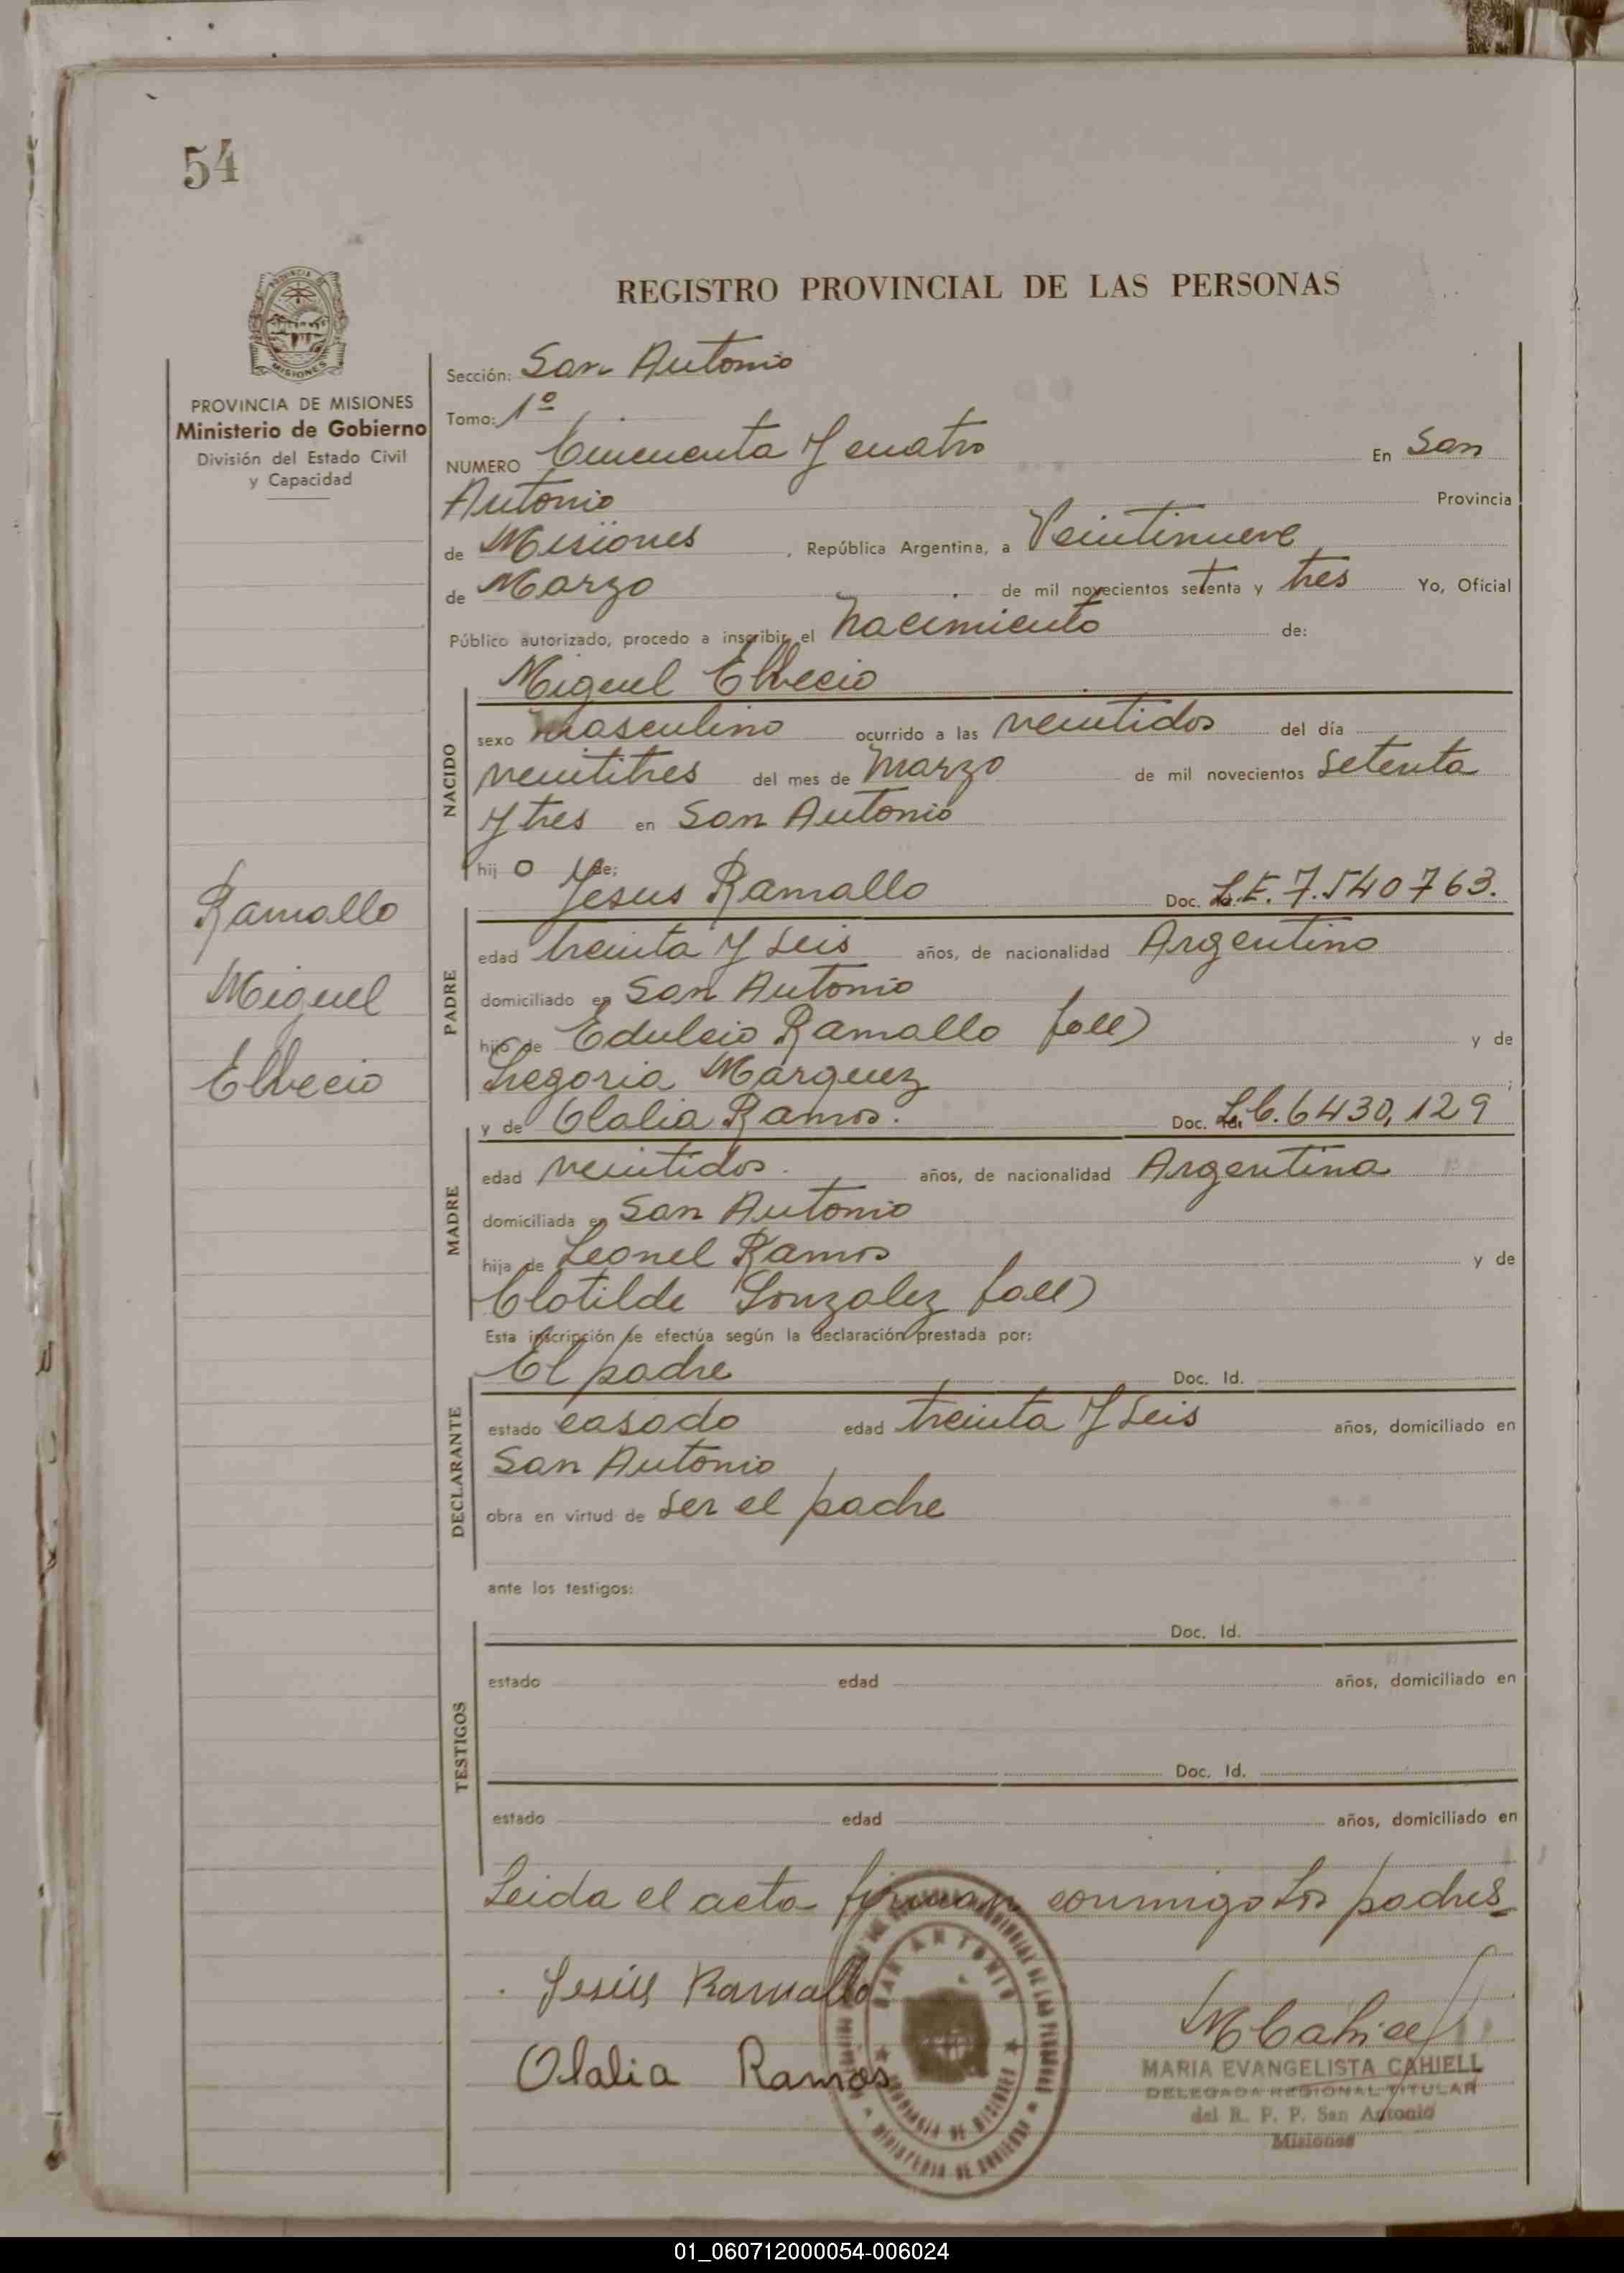 54
REGISTRO PROVINCIAL DE LAS PERSONAS
PROVINCIA DE MISIONES
Ministerio de Gobierno
División del Estado Civil
y Capacidad
Sección: San Antonio
Tomo: 1º
NUMERO Cincuenta y cuatro En San
Antonio Provincia
de Misiones, República Argentina, a Veintinueve
de Marzo de mil novecientos setenta y tres Yo, Oficial
Público autorizado, procedo a inscribir el nacimiento de:
Miguel Elvecio
NACIDO
sexo masculino ocurrido a las veintidos del día
veintitres del mes de Marzo de mil novecientos setenta
y tres en San Antonio
hij o de:
Jesus Ramallo Doc. L.E. 7.540763.
Ramallo
Miguel
Elvecio
PADRE
edad treinta y seis años, de nacionalidad Argentino
domiciliado en San Antonio
hijo de Edulcio Ramallo (all) y de
Gregoria Marquez;
y de Olalia Ramos. Doc. L.C. 6430,129
MADRE
edad veintidos. años, de nacionalidad Argentina
domiciliada en San Antonio
hija de Leonel Ramos y de
Clotilde Gonzalez (all)
Esta inscripción se efectúa según la declaración prestada por:
El padre Doc. Id.
DECLARANTE
estado casado edad treinta y seis años, domiciliado en
San Antonio
obra en virtud de ser el padre
ante los testigos:
Doc. Id.
TESTIGOS
estado edad años, domiciliado en
Doc. Id.
estado edad años, domiciliado en
Leida el acta firman conmigo los padres
Jesús Ramallo
Olalia Ramos
SAN ANTONIO
PROVINCIA DE MISIONES
MINISTERIO DE GOBIERNO
MCahiell
MARIA EVANGELISTA CAHIELL
DELEGADA REGIONAL TITULAR
del R. P. P. San Antonio
Misiones
01_060712000054-006024